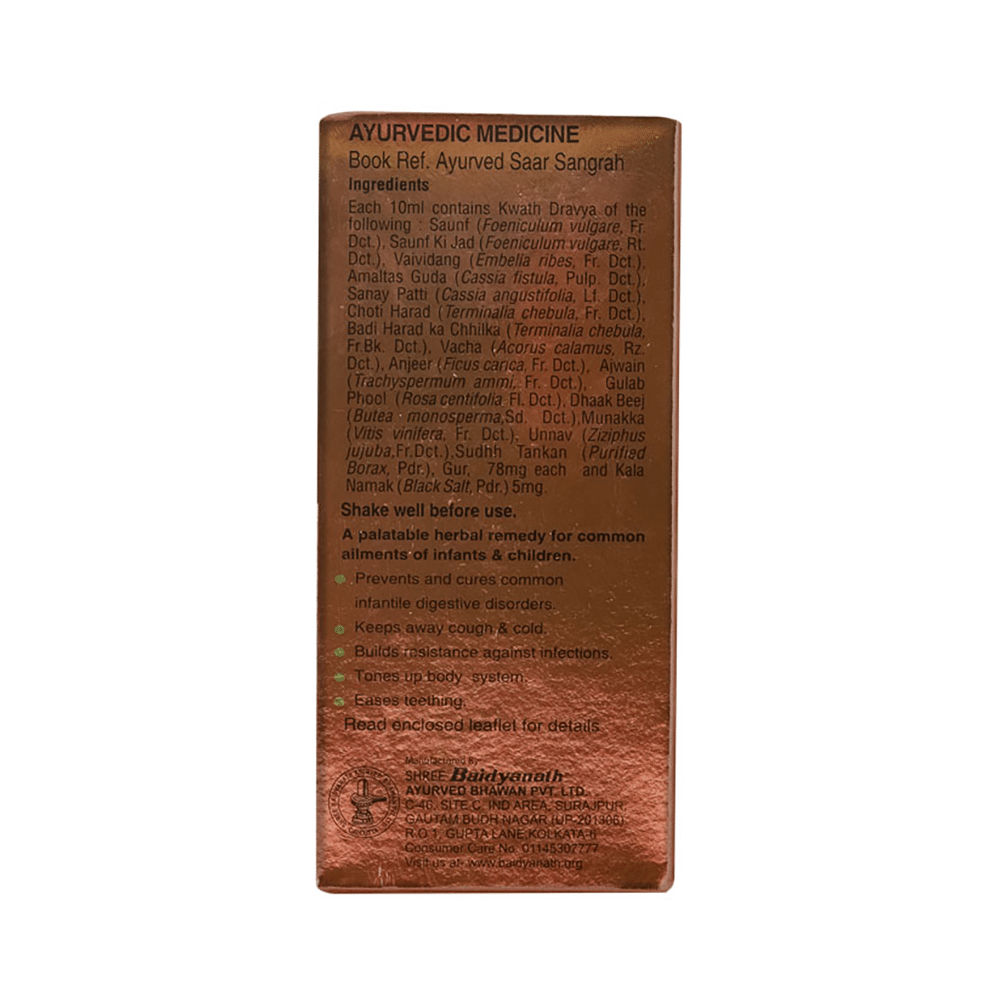 AYURVEDIC MEDICINE
Book Ref. Ayurved Saar Sangrah
Ingredients
Each 10ml contains Kwath Dravya of the
following : Saunf (Foeniculum vulgare, Fr.
Dct.), Saunf Ki Jad (Foeniculum vulgare, Rt.
Dct.), Vaividang (Embella ribes, Fr. Dct.),
Amaltas Guda (Cassia fistula, Pulp. Dct.),
Sanay Patti (Cassia angustifolia, Lf. Dct.),
Choti Harad (Terminalia chebula, Fr. Dct.),
Badi Harad ka Chhilka (Terminalia chebula,
Fr.Bk. Dct.), Vacha (Acorus calamus, Rz.
Dct.), Anjeer (Ficus carica, Fr. Dct.), Ajwain
(Trachyspermum ammi, Fr. Dct.), Gulab
Phool (Rosa centifolia Fl. Dct.), Dhaak Beej
(Butea monosperma,Sd. Dct.),Munakka
(Vitis vinifera, Fr. Dct.), Unnav (Ziziphus
jujuba,Fr.Dct.),Sudhh Tankan (Purified
Borax, Pdr.), Gur, 78mg each and Kala
Namak (Black Salt, Pdr.) 5mg.
Shake well before use.
A palatable herbal remedy for common
ailments of infants & children.
Prevents and cures common
infantile digestive disorders.
Keeps away cough & cold.
Builds resistance against infections.
Tones up body system.
Eases teething.
Read enclosed leaflet for details
Manufactured By
SHREE Baidyanath
AYURVED BHAWAN PVT. LTD.
C-46, SITE C, IND AREA, SURAJPUR,
GAUTAM BUDH NAGAR (UP-201306)
R.O 1, GUPTA LANE,KOLKATA-6
Consumer Care No. 01145307777
Visit us at- www.baidyanath.org